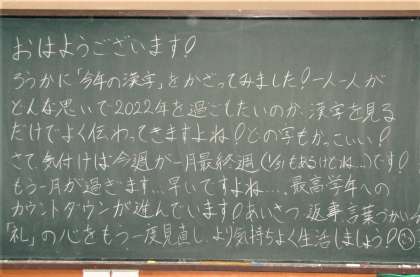 おはようございます!
ろうかに「今年の漢字」をかざってみました!一人一人が
どんな思いで2022年を過ごしたいのか、漢字を見る
だけでよく伝わってきますよね!どの字もかっこいい!
さて、気付けば今週が一月最終週(1/31もあるけどね…)です!
もう一月が過ぎます…早いですよね…、最高学年への
カウントダウンが進んでいます!あいさつ、返事、言葉づかい
「礼」の心をもう一度見直し、より気持ちよく生活しましょう!